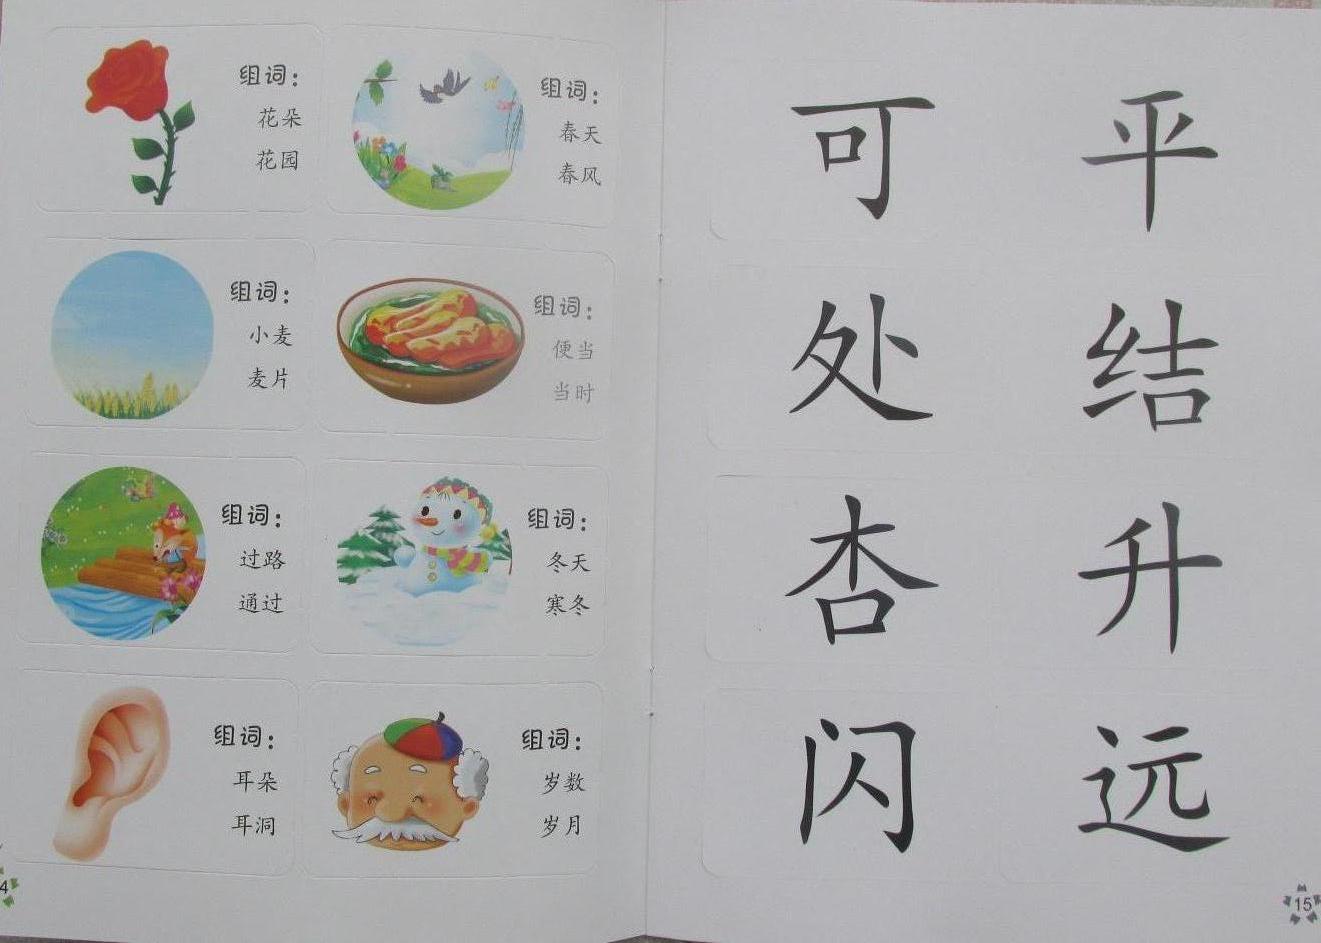 组词：
花朵
花园
组词：
春天
春风
组词：
小麦
麦片
组词：
便当
当时
组词：
过路
通过
组词：
冬天
寒冬
组词：
耳朵
耳洞
组词：
岁数
岁月
4
可 平
处 结
杏 升
闪 远
15